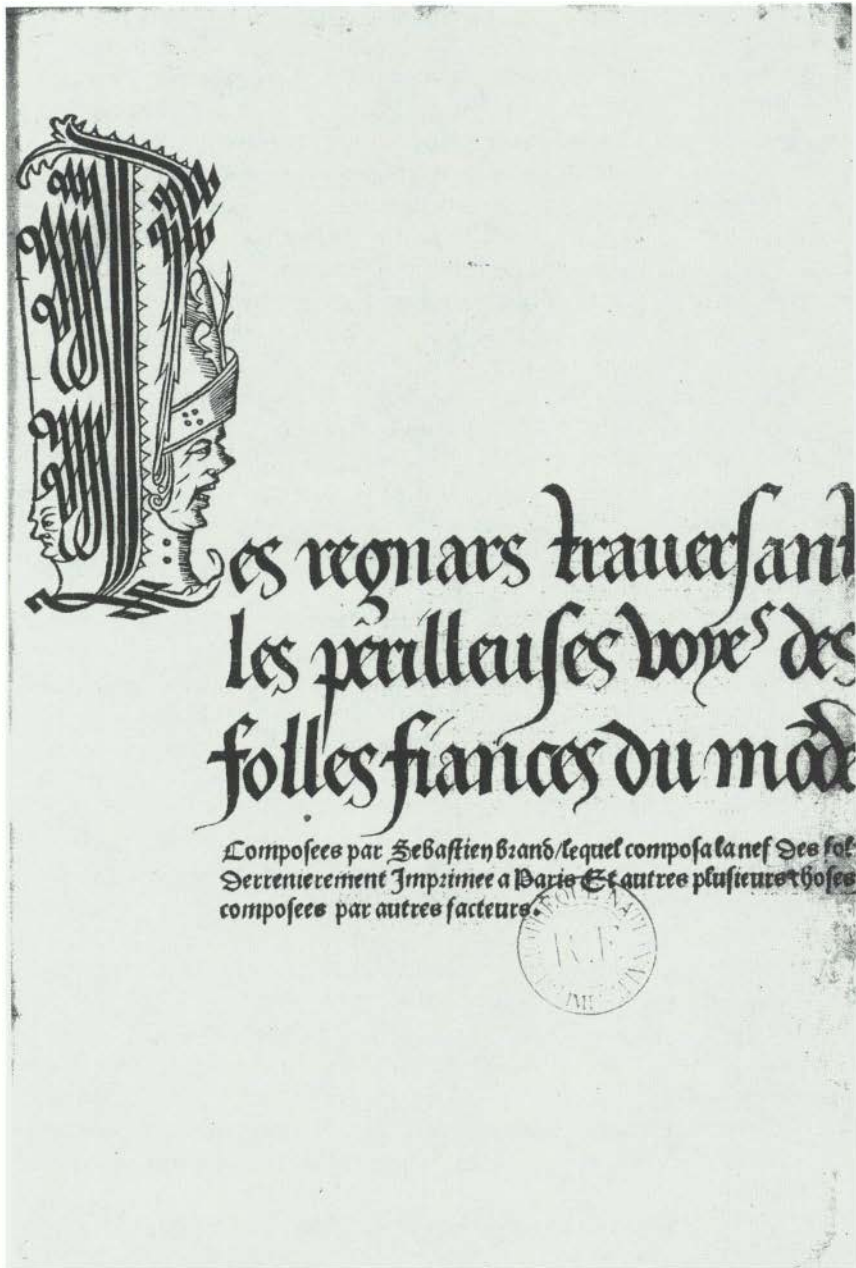 Les regnars trauersant
les perilleuses voyes des
folles fiances du mõde
Composees par Sebastien brand/lequel composa la nef des fol
derrenierement Imprimee a Paris Et autres plusieurs choses
composees par autres facteurs.
R.F.